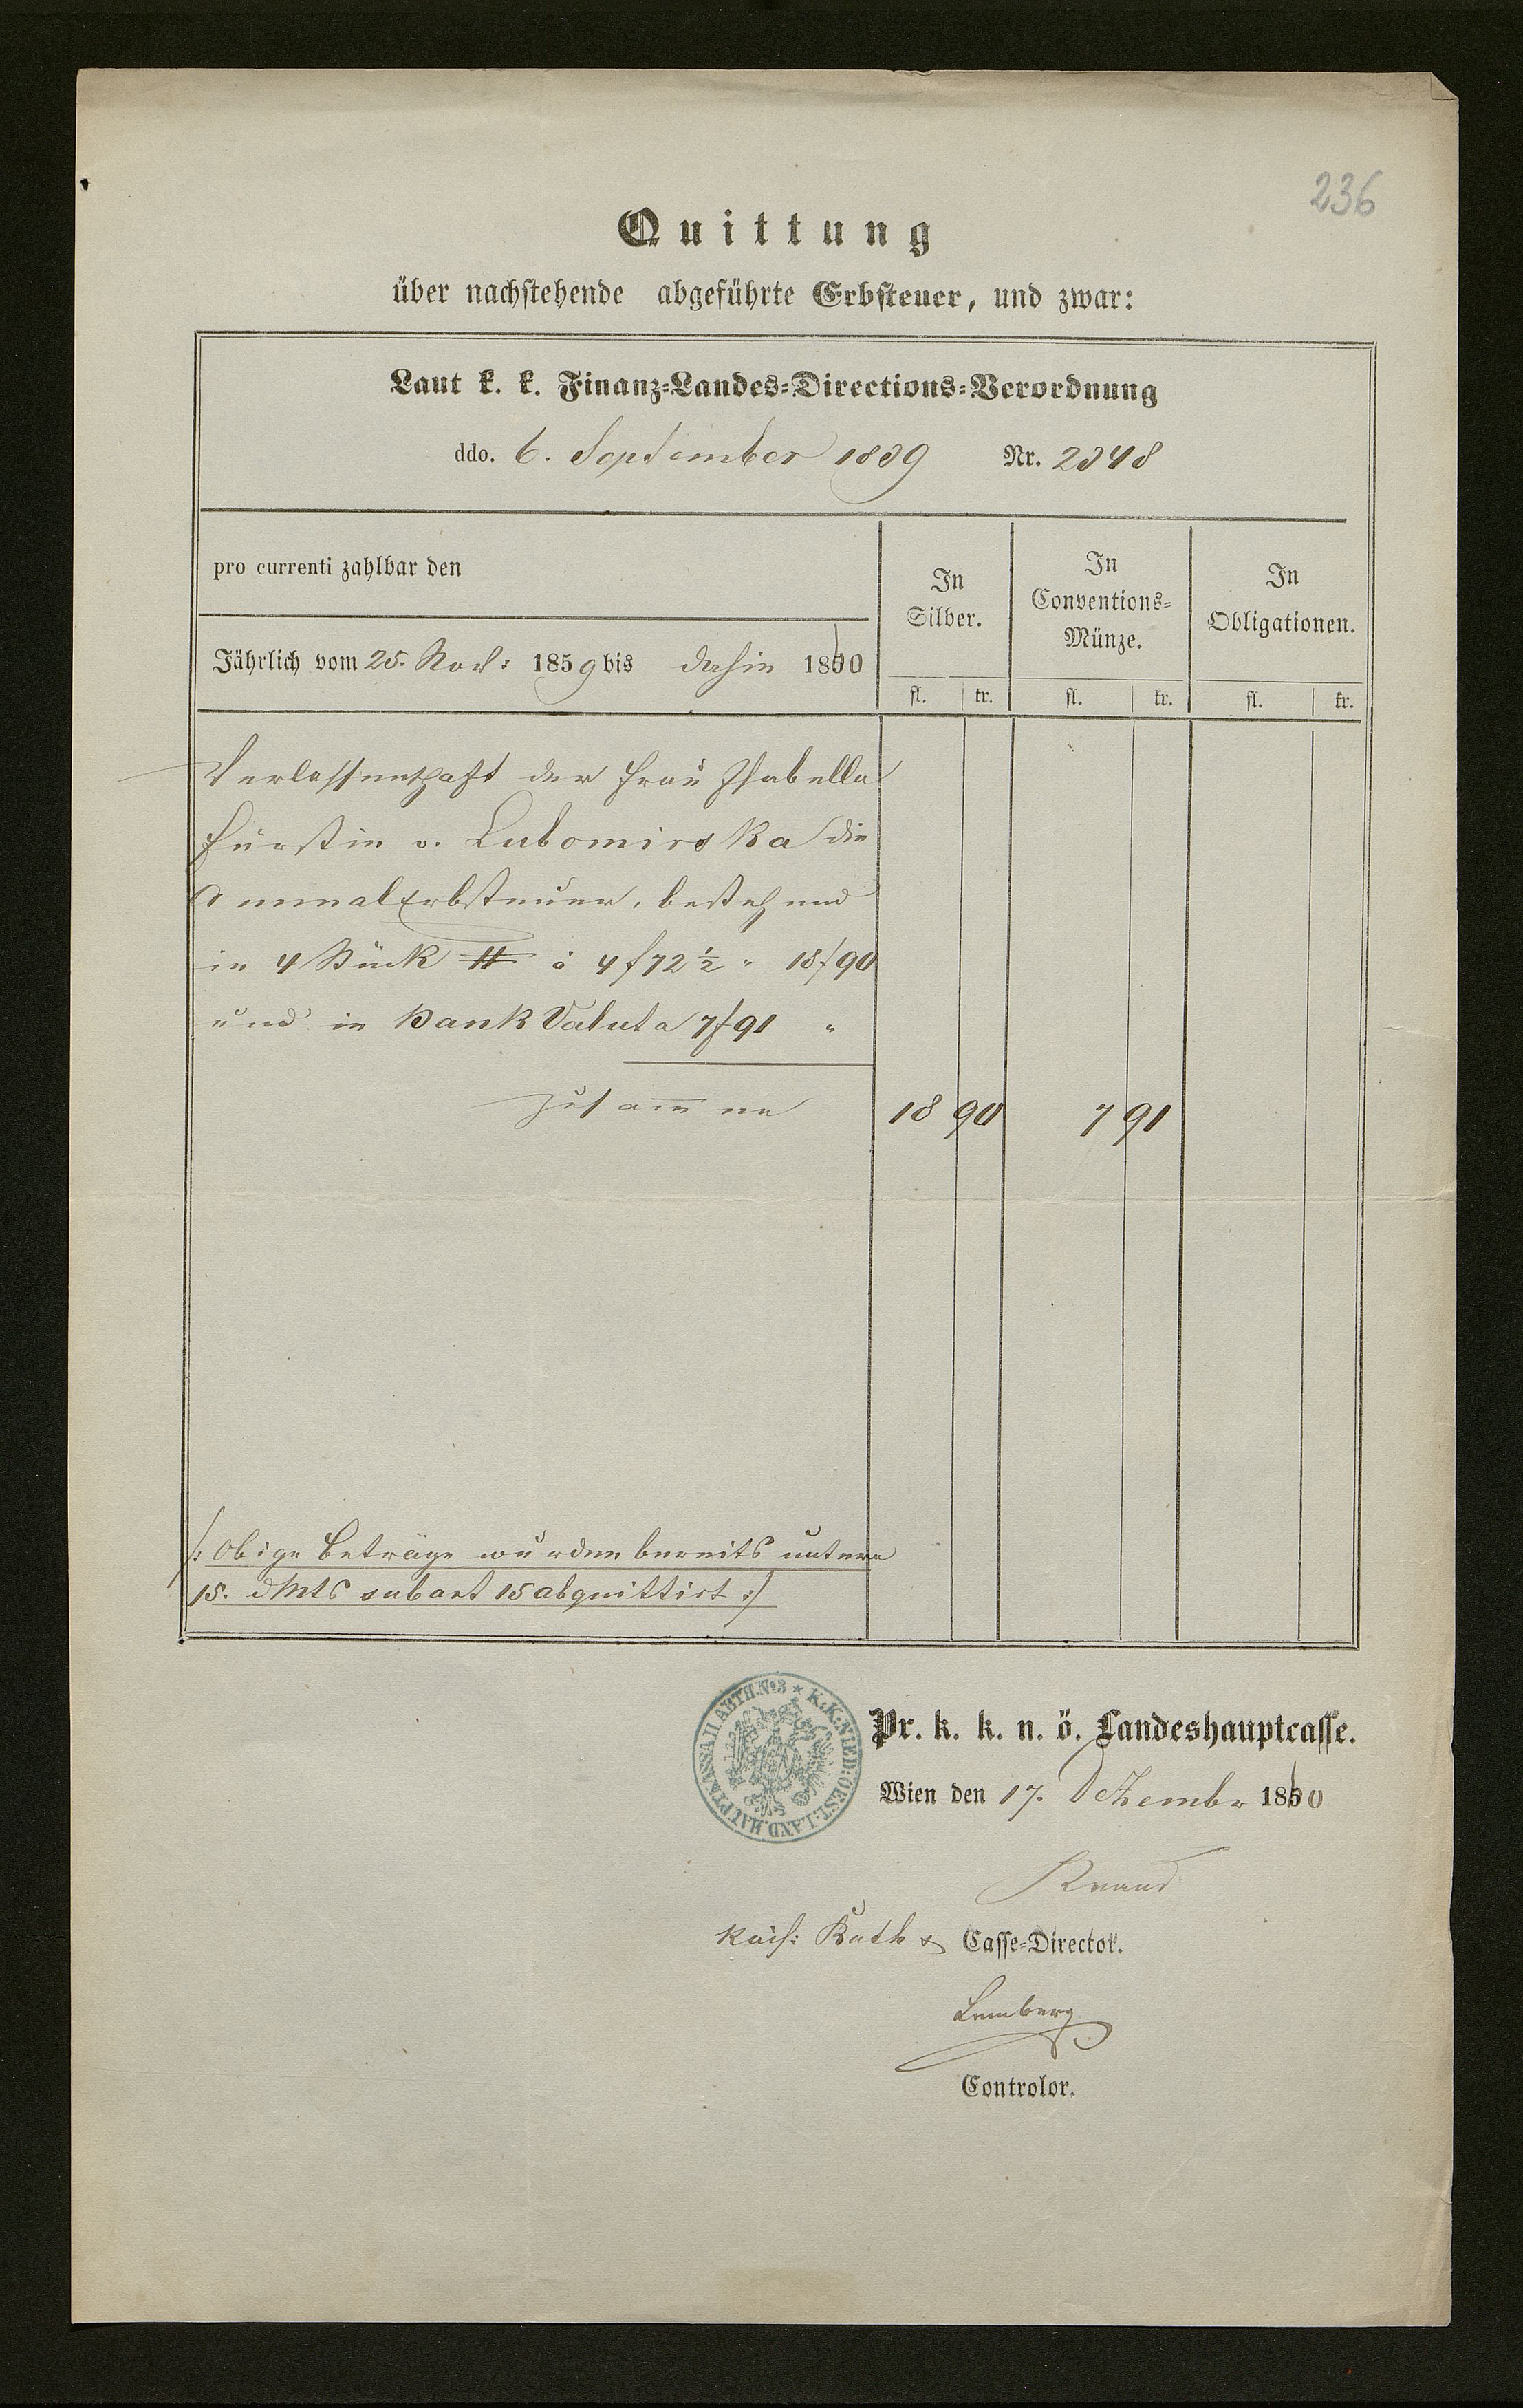 236
Quittung
über nachstehende abgeführte Erbsteuer, und zwar:
Laut k. k. Finanz-Landes-Directions-Verordnung
ddo. 6. September 1839 Nr. 2348
pro currenti zahlbar den
Jährlich vom 25. Nov: 1859 bis dahin 1860
In Silber.
In Conventions-Münze.
In Obligationen.
fl. kr. fl. kr. fl. kr.
Verlassenschaft der Frau Isabella
Fürstin v. Lubomirska die
Annual Erbsteuer, bestehend
in 4 Stück # à 4 f 72 ½ " 18 f 90
und in Bank Valuta 7 f 91 "
Zusammen 18 90 7 91
/: Obige Beträge wurden bereits unterm
15. dMts subart 15 abquittirt :/
K. K. NIED: OEST: LAND. HAUPTKASSA II ABTH. No 3
Pr. k. k. n. ö. Landeshauptcasse.
Wien den 17. Dezember 1860
kais: Rath & Casse-Director.
Lemberg
Controlor.